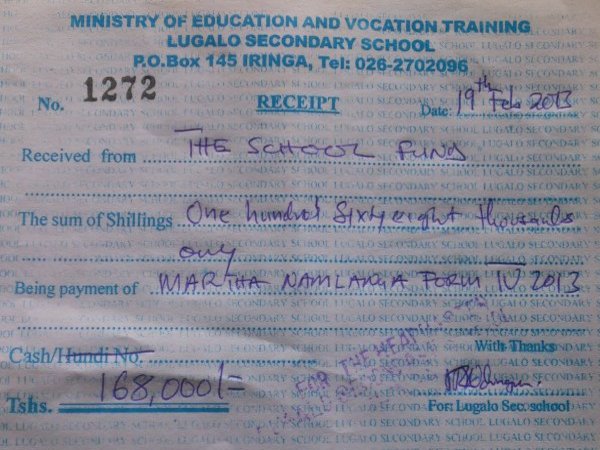 MINISTRY OF EDUCATION AND VOCATION TRAINING
LUGALO SECONDARY SCHOOL
P.O.Box 145 IRINGA, Tel: 026-2702096
No. 1272 RECEIPT Date: 19th Feb 2013
Received from THE SCHOOL FUND
The sum of Shillings One hundred sixty eight thousands
only
Being payment of MARTHA FORM IV 2013
Cash/Hundi No. With Thanks
FOR THE
Tshs. 168,000/= For: Lugalo Sec. school